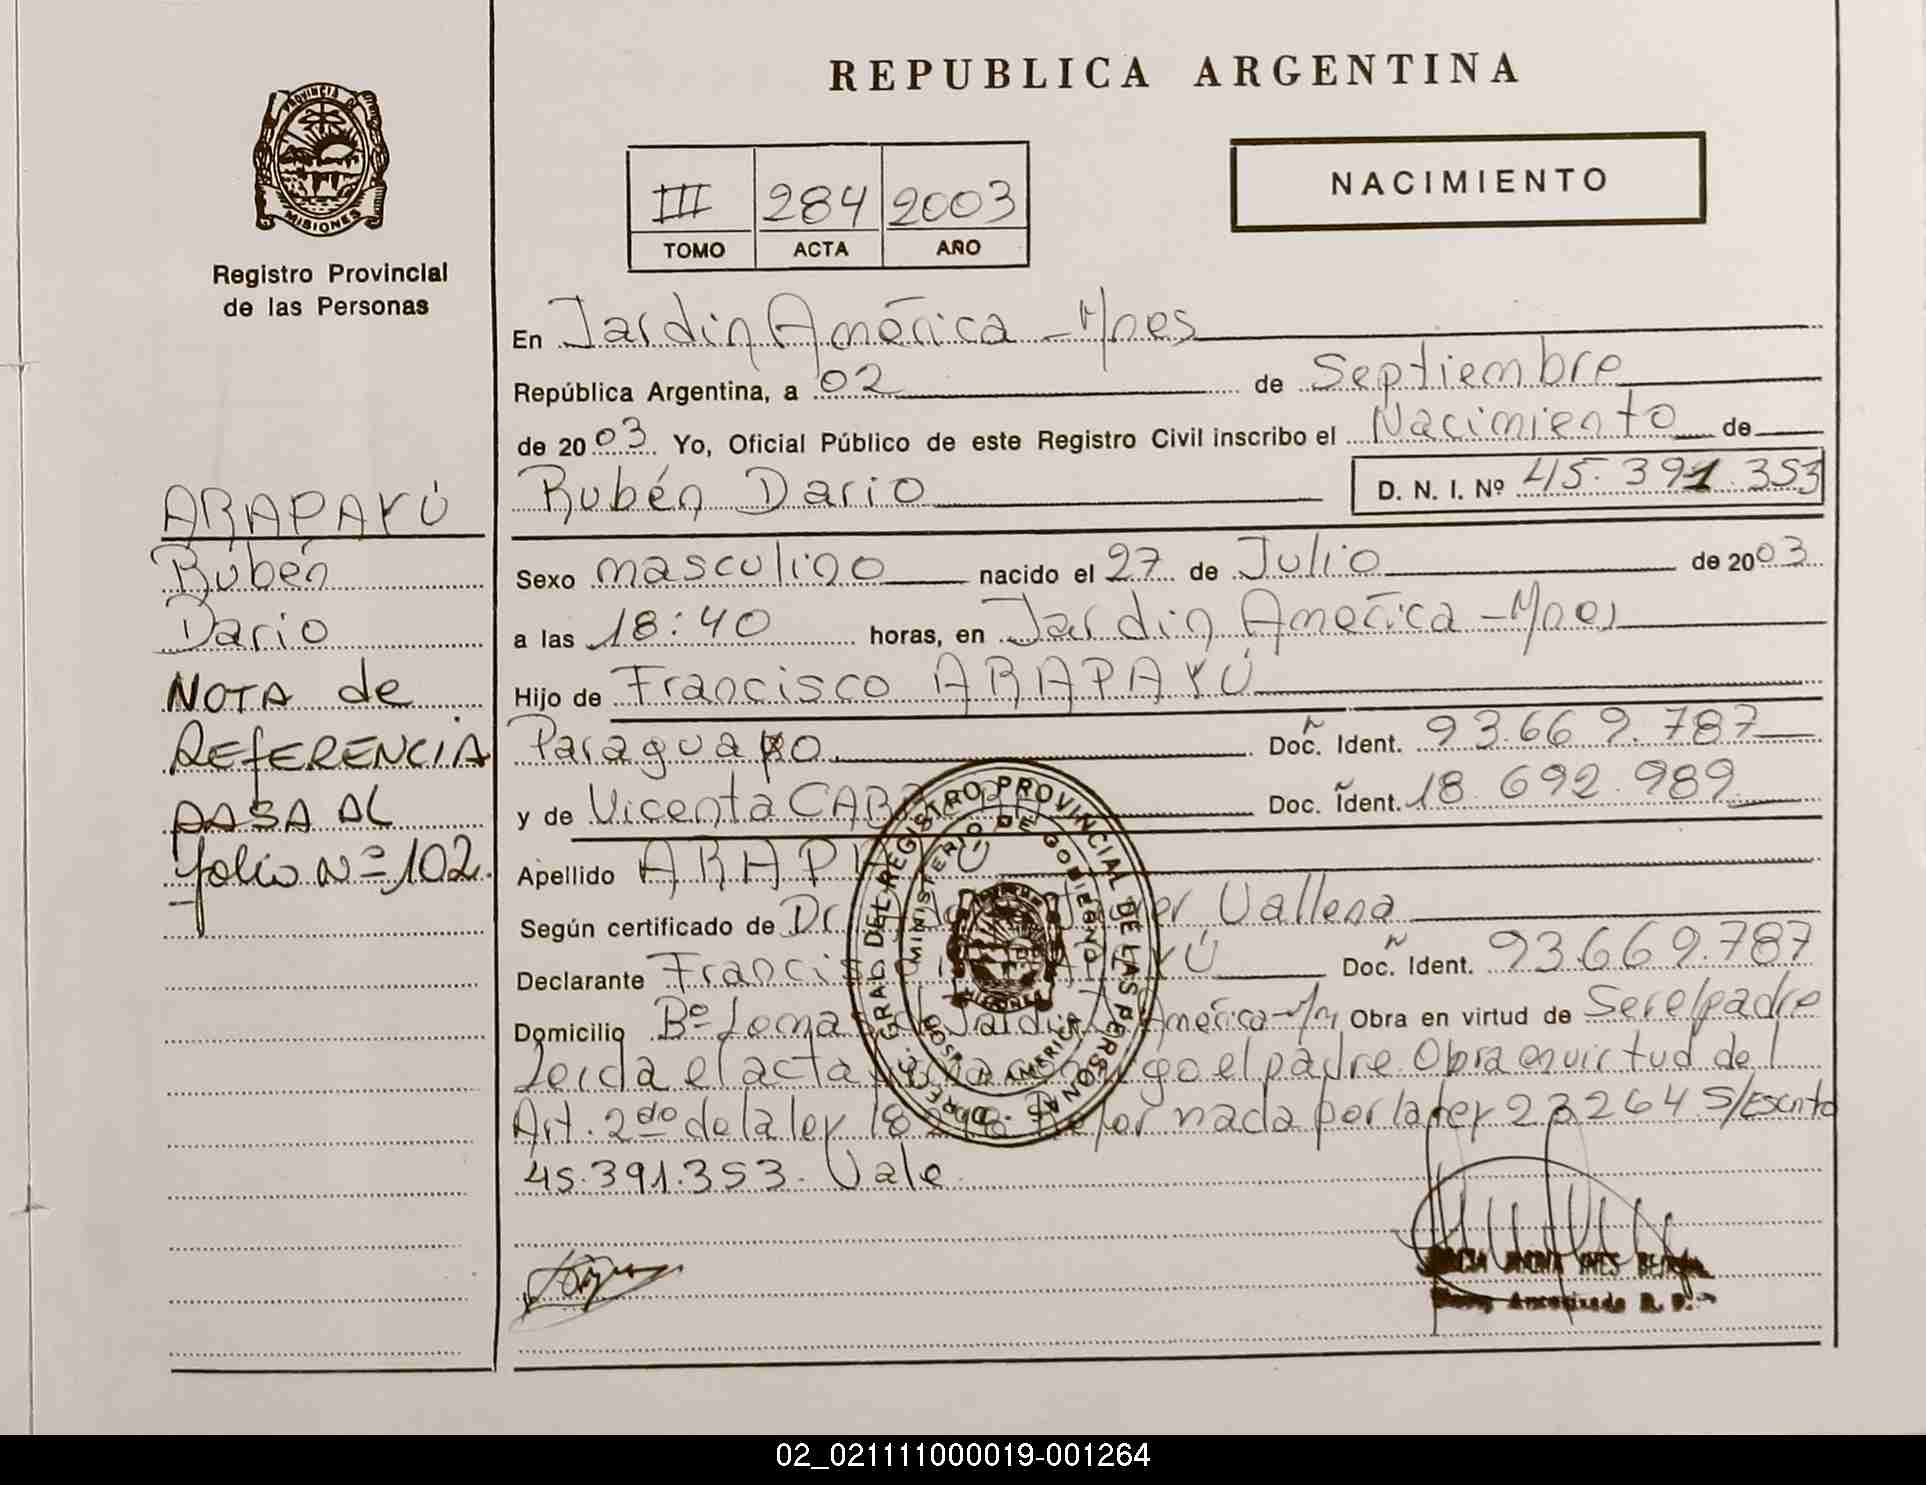 REPUBLICA ARGENTINA
PROVINCIA DE
MISIONES
Registro Provincial
de las Personas
III 284 2003
TOMO ACTA AÑO
NACIMIENTO
En Jardin América - Mnes
República Argentina, a 02 de Septiembre
de 2003 Yo, Oficial Público de este Registro Civil inscribo el Nacimiento de
Rubén Dario D. N. I. Nº 45.391.353
Sexo masculino nacido el 27 de Julio de 2003
a las 18:40 horas, en Jardin América - Mnes
Hijo de Francisco ARAPAYÚ
Paraguayo Doc. Ident. Ñ 93.669.787
y de Vicenta Doc. Ident. Ñ 18.692.989
Apellido ARAPAYÚ
Según certificado de Dr. Vallena
Declarante Francisco ARAPAYÚ Doc. Ident. Ñ 93.669.787
Domicilio Bº Lomas Jardin América - M/n Obra en virtud de Ser el padre
Leida el acta el padre. Obra en virtud del
Art. 2do de la ley 18 por la ley 23264 S/Escrito
45.391.353. Vale
ARAPAYÚ
Rubén
Dario
NOTA de
REFERENCIA
PASA AL
folio Nº 102.
DIREC. GRAL. DEL REGISTRO PROVINCIAL DE LAS PERSONAS
MINISTERIO DE GOBIERNO
MISIONES
AMERICA
02_021111000019-001264